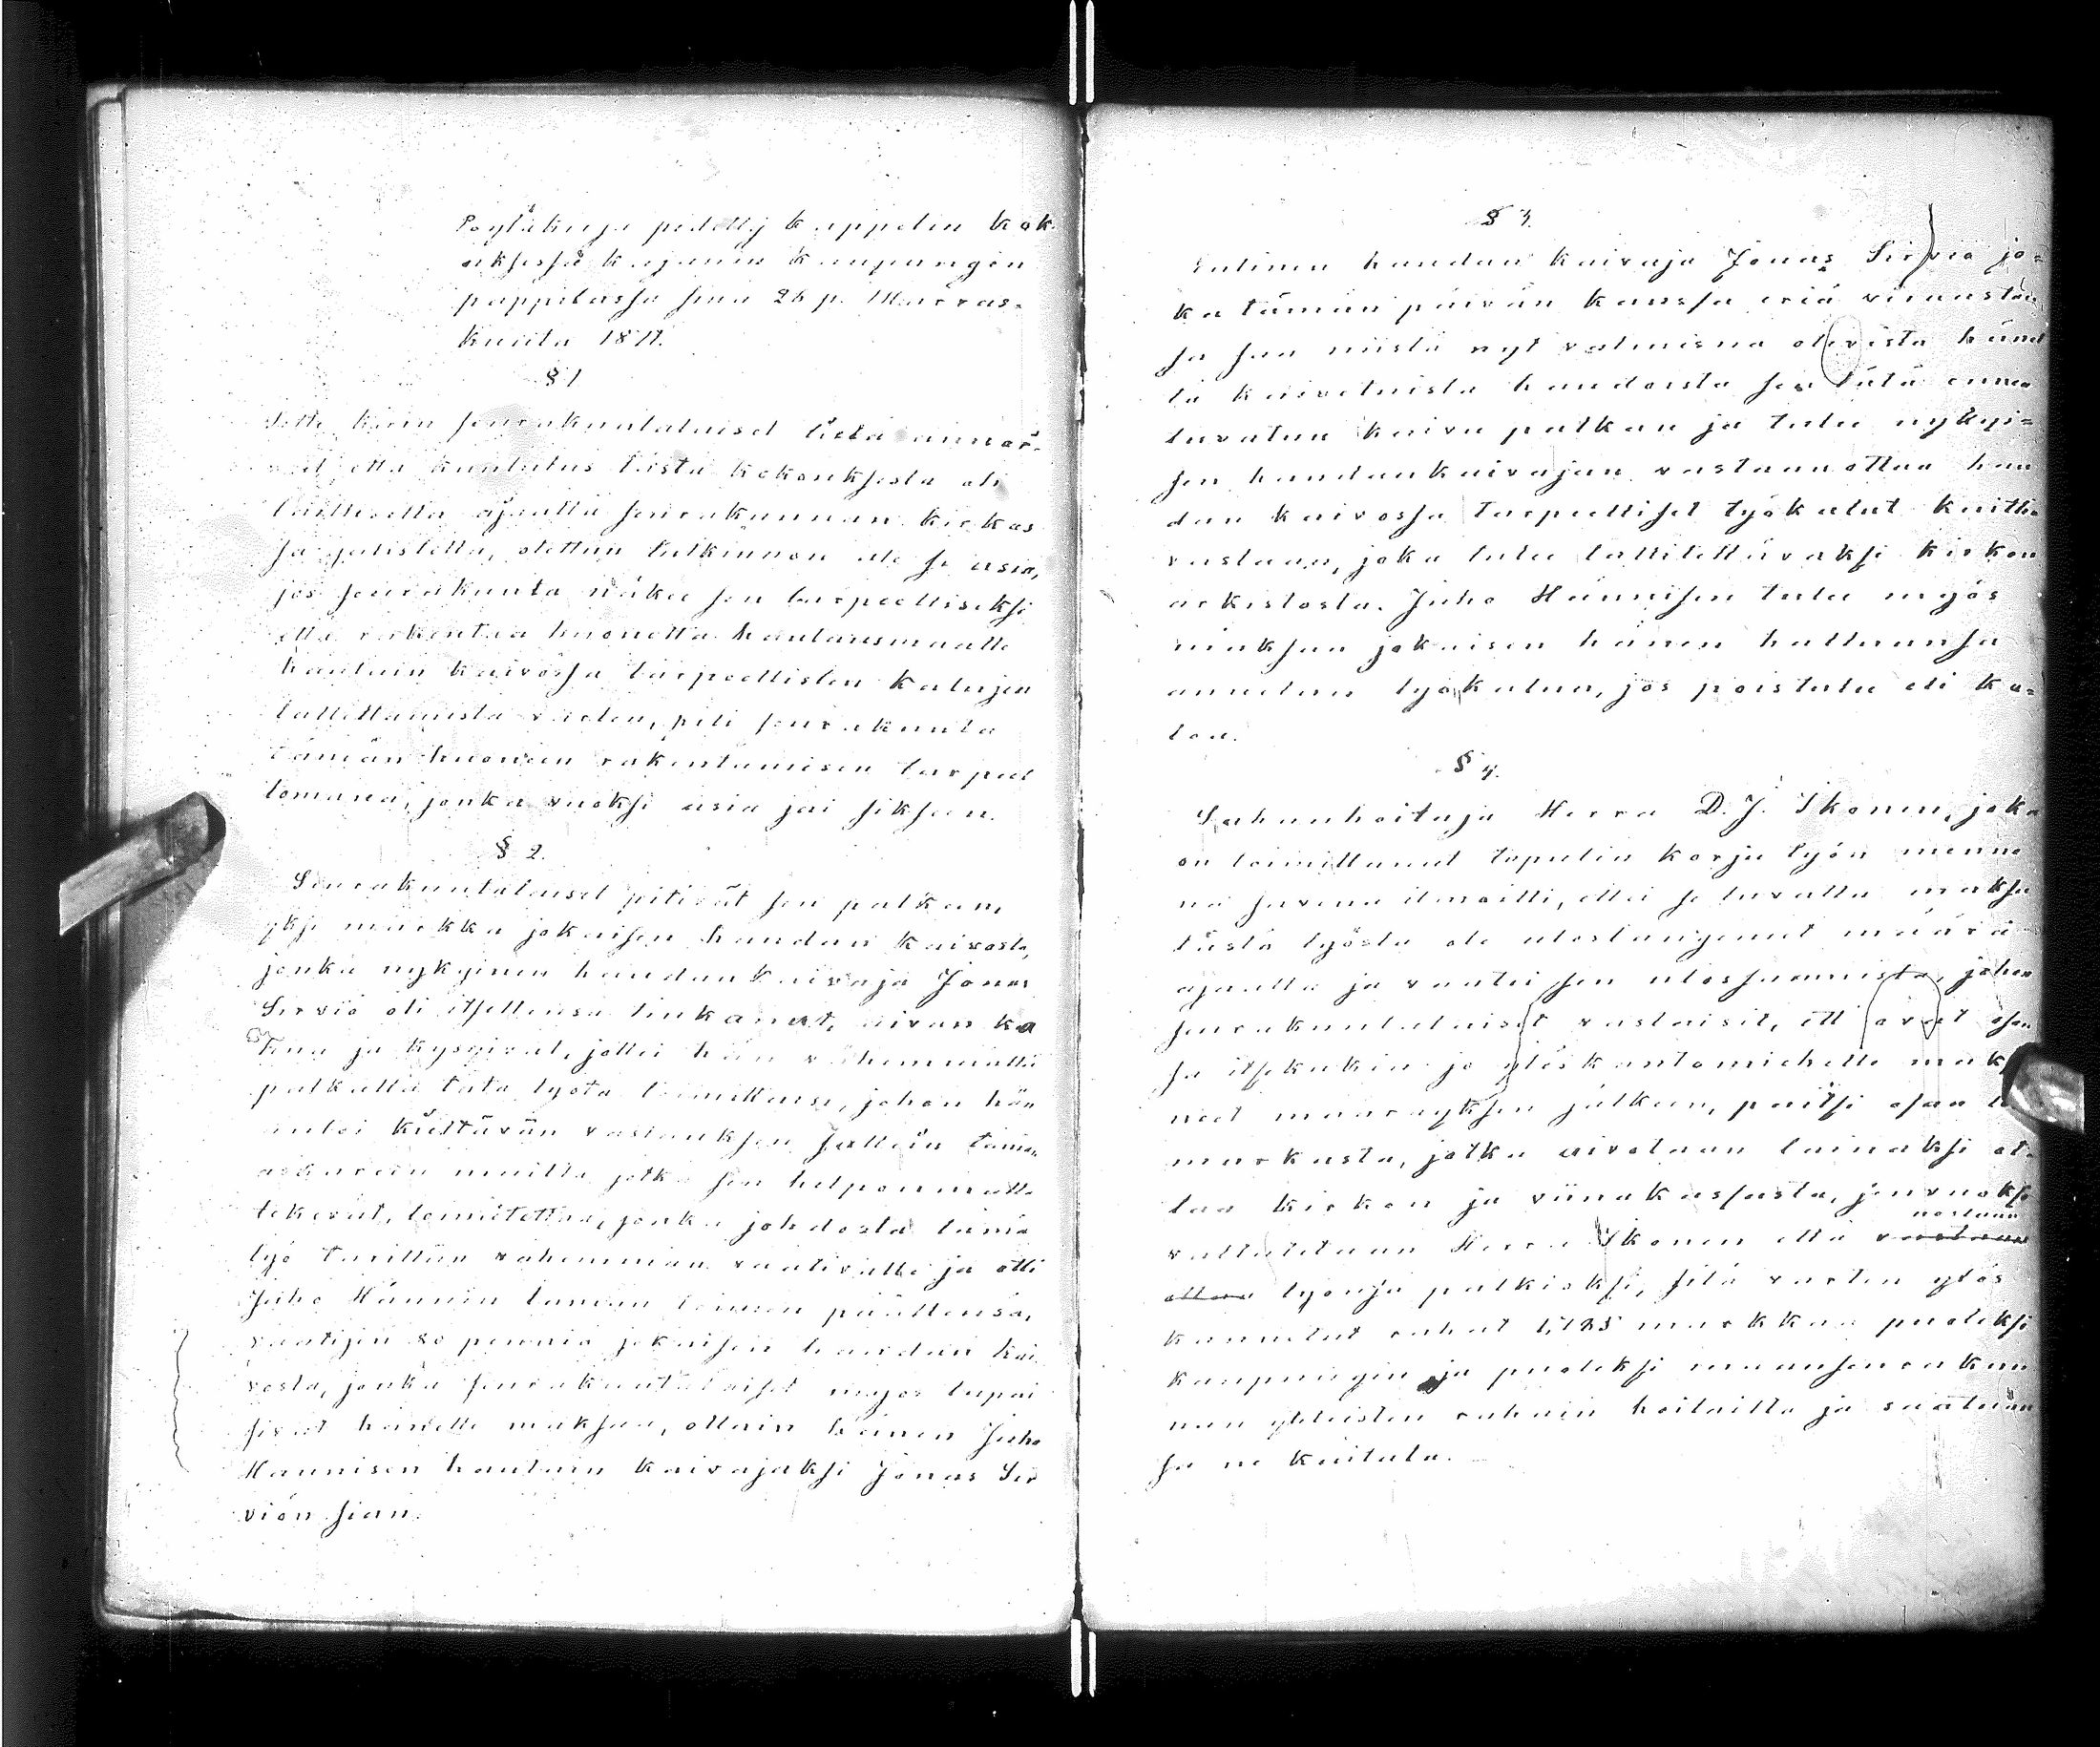 Pöytäkirja pidetty kappelin kok
ouksessa Kajanin kaupungin
pappilassa sinä 26 p. Marras-
kuuta 1871.
§ 1
Sitte kuin seurakuntalaiset tästä
että kuulutus tästä kokouksesta oli
laillisella ajalla seurakunnan kirkos
sa julistettu, otettiin tutkinnon ale se asia,
jos seurakunta näkee sen tarpeelliseksi
että rakentaa huonetta hautausmaalle
hautain kaivossa tarpeellisten kalujen
tallittamista varten, piti seurakunta
tämän huoneen rakentamisen tarpeet
tomana, jonka vuoksi asia jäi siksein.
§ 2.
Seurakuntalaiset pitivät sen palkan,
yksi markka jokaisen haudan kaivosta,
jonka nykyinen haudankaivaja Jonas
Sirviö oli itsellensä tinkanut, aivan ka
liina ja kysyivat, jollei hän vähemmällä
palkalla tätä työtä toimittaisi, johon hän
antoi kieltävän vastauksen
muilla jotka sen helpommalla
tekevät, toimitettaa, jonka johdosta tämä
työ tarittiin vähemmän vaativalle ja otti
Juho Hännin tämän toimen päällensä,
vaatijen 80 penniä jokaisen haudan kai
vosta, jonka seurakuntalaiset myös lupai
sivat hänelle maksaa, ottain hänen Juho
Hannisen hautain kaivajaksi Jonas Sir
viön sian.
§ 3.
Entinen haudan kaivaja Jonas Sirviö jo=
ka tämän päivän kanssa eriä virastan
sa saa niistä nyt valmisna olevista hänel
tä kaivetuista haudoista sen tätä ennen
luvatun kaivu palkan ja tulee nykyi=
sen haudankaivajan vastaanottaa hau
dan kaivossa tarpeelliset työkalut kuittia
vastaan, joka tulee tallitettavaksi kirkon
arkistosta. Juho Hännisen tulee myös
maksaa jokaisen hänen haltuunsa
annetun työkalun, jos poistulee eli ka=
too.
§ 4.
Sahanhoitaja Herra D. J. Ikonen, joka
on toimittanut tapulin korja työn menne
nä suvena ilmoitti, ettei se luvattu maksu
tästä työstä ole ulostangenut määrä
ajalla ja vaatei sen ulossaamista, johon
seurakuntalaiset vastaisit, ett ovat osan
sa itsekukin jo yläskantomiehelle maks
neet määräyksen jälkeen, paitsi osaa
markasta, jotka aivotaan lainaksi ot-
taa kirkon ja viinakassasta, jonvuoksi
valtutetaan Herra Ikonen että vastaan nostaan
ottaa työnjä palkioksi, sitä varten ylös
kannetut rahat 1,125 markkaa puoleksi
kaupungin ja puoleksi maanseurakun
nan yhteisten rahain hoitailta ja saatuan
sa ne kuitata.